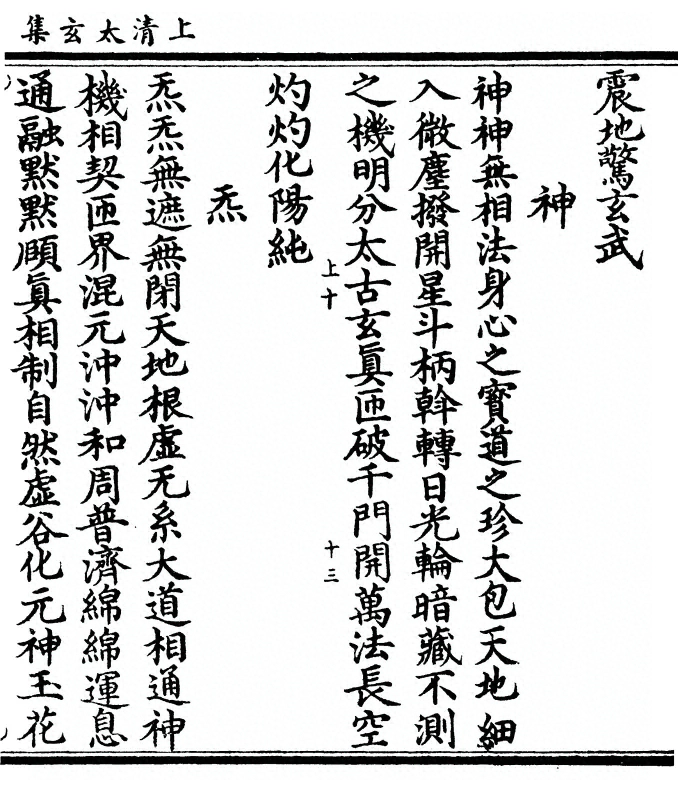 上清太玄集
震地驚玄武
神
神神無相法身心之寶道之珍大包天地細
入微塵撥開星斗柄斡轉日光輪暗藏不測
之機明分太古玄眞匝破千門開萬法長空
上十
十三
灼灼化陽純
炁
炁炁無遮無閉天地根虛无系大道相通神
機相契匝界混元沖沖和周普濟綿綿運息
通融默默頤眞相制自然虛谷化元神玉花